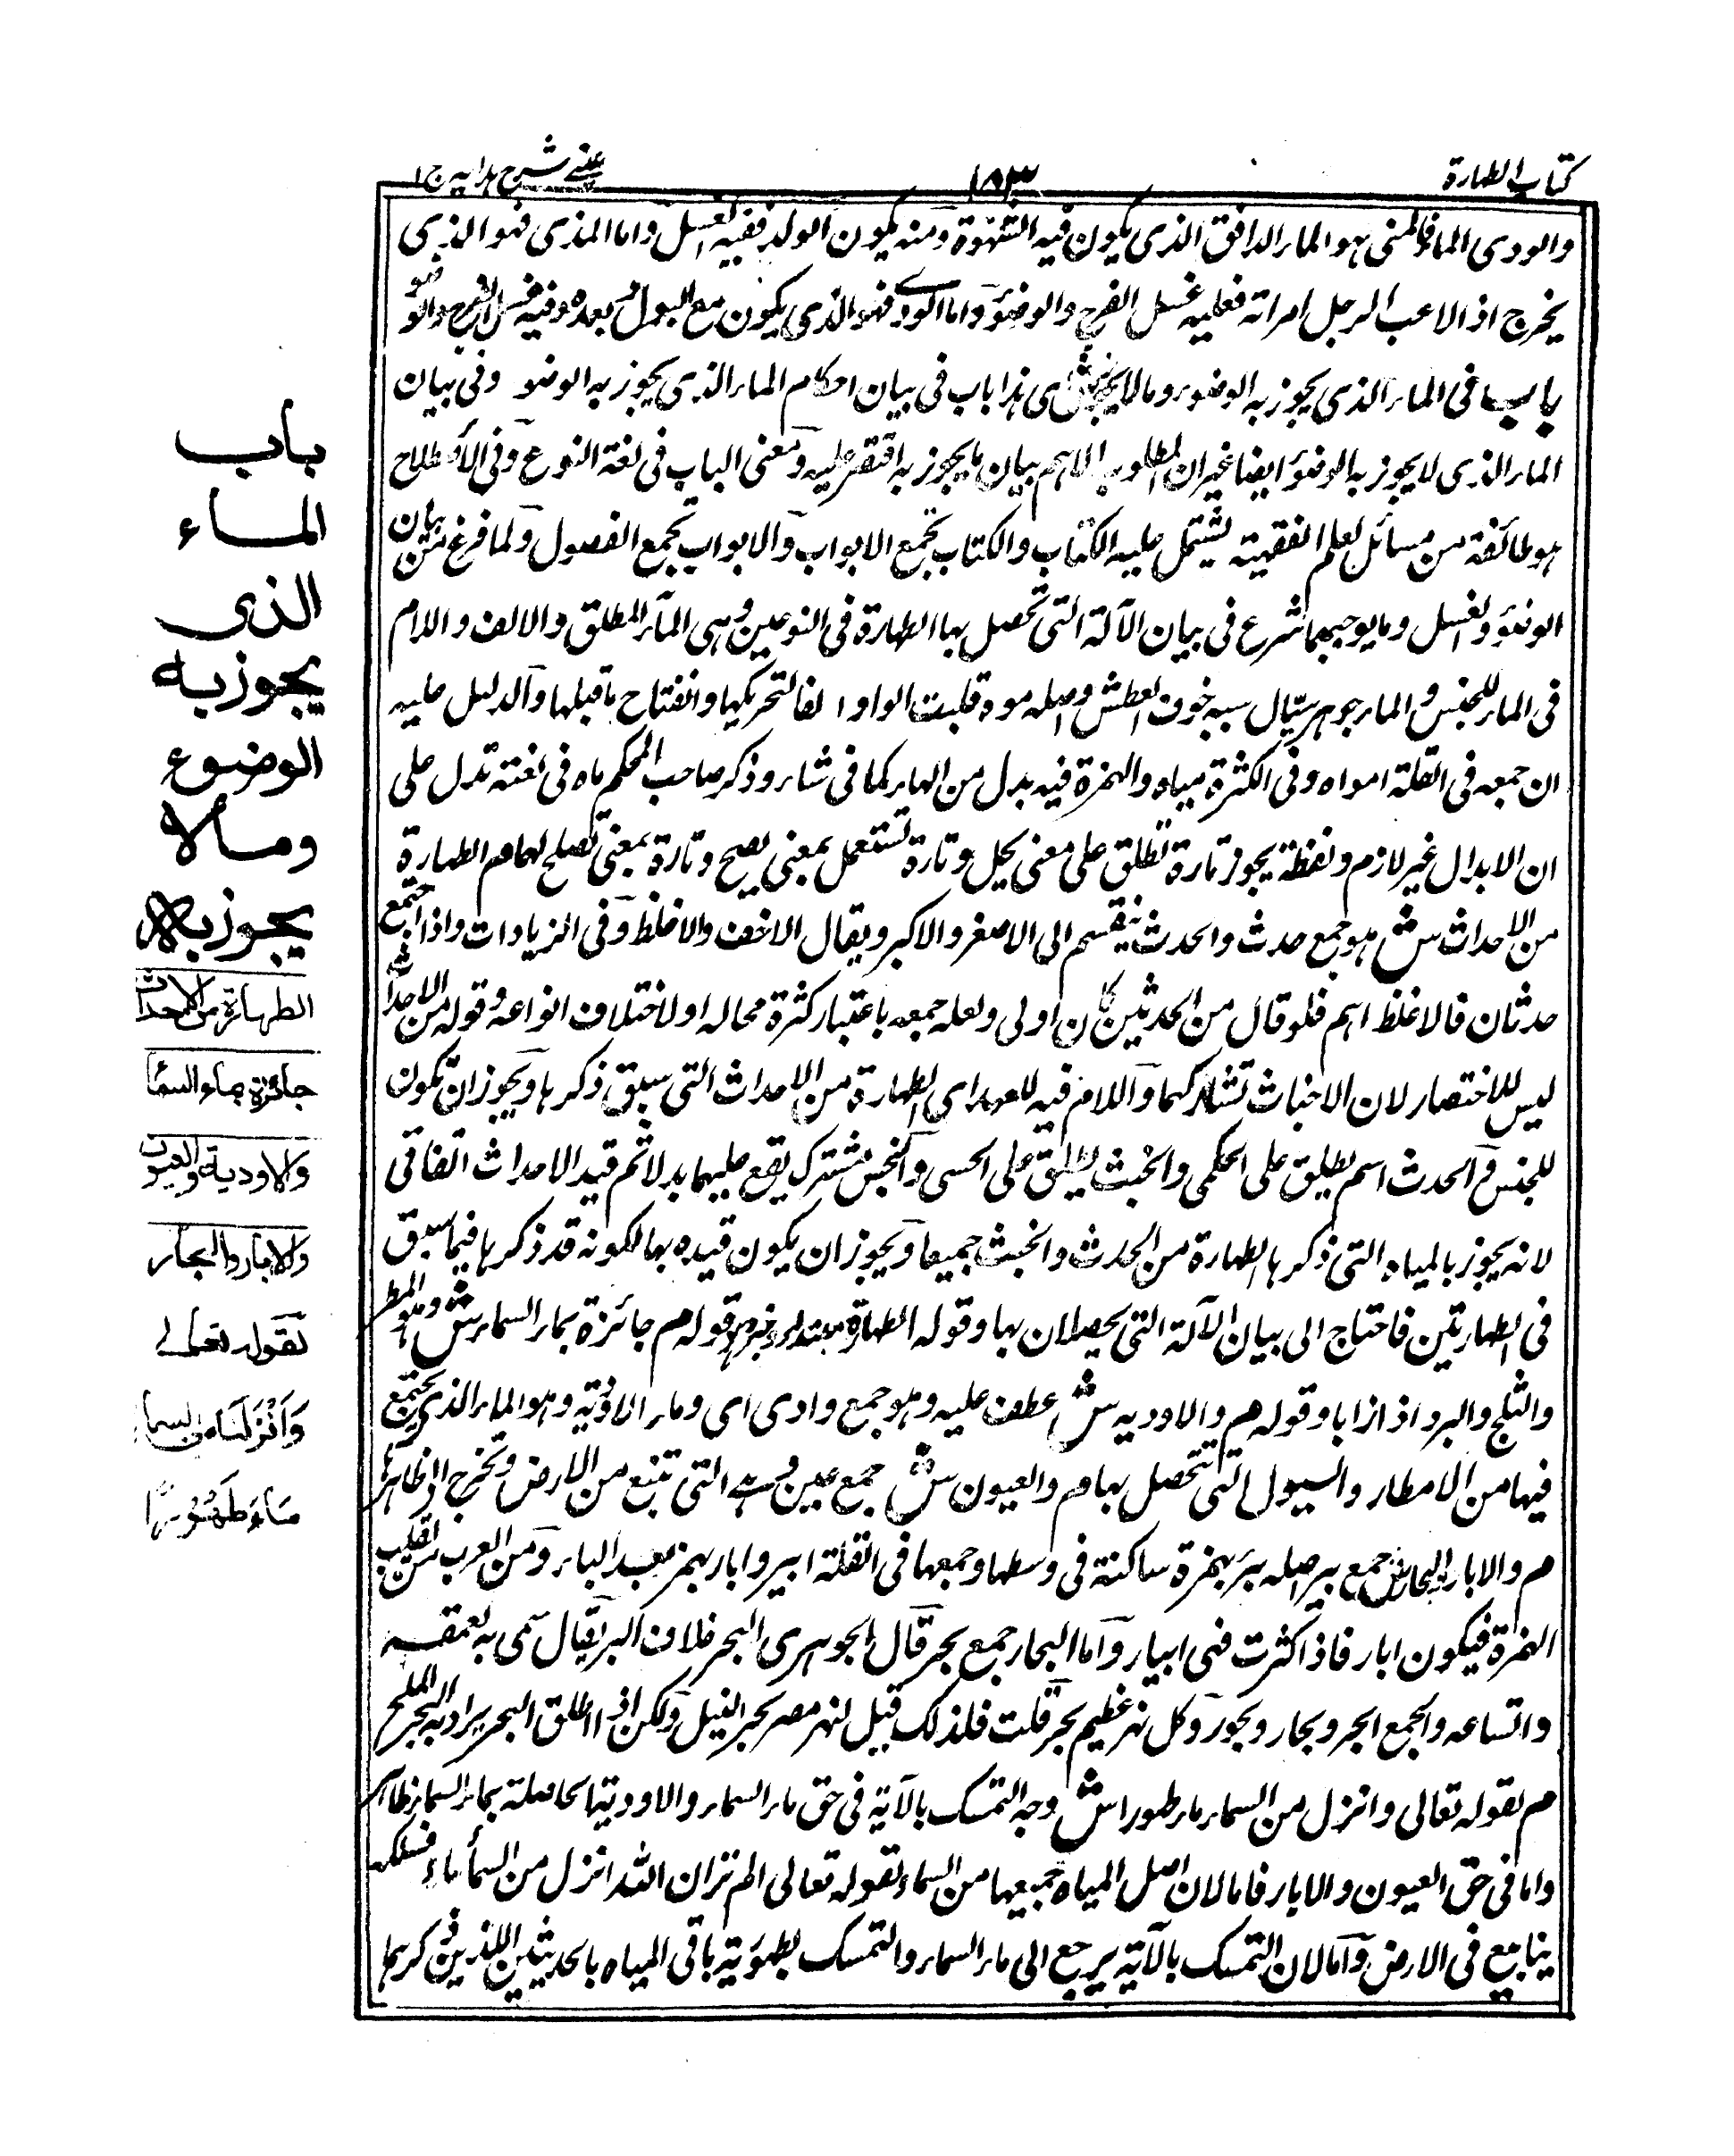 كتاب الطهارة
١٨٣
عيني شرح هدايه ج ١
والودي الماء فالمني هو الماء الدافق الذي يكون فيه الشهوة ومنه يكون الولد ففيه الغسل واما المذي فهو الذي
يخرج اذا لاعب الرجل امراته فعليه غسل الفرج والوضوء واما الودي فهو الذي يكون مع البول وبعده وفيه غسل الفرج والوضوء
باب في الماء الذي يجوز به الوضوء وما لا يجوز ش اي هذا باب في بيان احكام الماء الذي يجوز به الوضوء وفي بيان
الماء الذي لا يجوز به الوضوء ايضا غير ان المطلوب الاهم بيان ما يجوز به اقتصر عليه ومعنى الباب في لغة النوع وفي الاصطلاح
هو طائفة من مسائل العلم الفقهية يشتمل عليه الكتاب والكتاب يجمع الابواب والابواب تجمع الفصول ولما فرغ من بيان
الوضوء والغسل وما يوجبهما شرع في بيان الآلة التي تحصل بها الطهارة في النوعين وهي الماء المطلق والالف واللام
في الماء للجنس والماء جوهر سيّال سبه خوف العطش واصله موه قلبت الواو الفا لتحريكها وانفتاح ما قبلها والدليل عليه
ان جمعه في القلة امواه وفي الكثرة مياه والهمزة فيه بدل من الهاء كما في شاء وذكر صاحب المحكم ماه في لغته تدل على
ان الابدال غير لازم ولفظة يجوز تارة تطلق على معنى يحل وتارة تستعمل بمعنى يصح وتارة بمعنى تصلح لهما م الطهارة
من الاحداث ش هو جمع حدث والحدث ينقسم الى الاصغر والاكبر ويقال الاخف والاغلظ وفي الزيادات واذا اجتمع
حدثان فالاغلظ اهم فلو قال من الحدثين كان اولى ولعله جمعه باعتبار كثرة محاله او لاختلاف انواعه وقوله من الاحداث
ليس للاختصار لان الاخباث تشاركها واللام فيه للعهد اي الطهارة من الاحداث التي سبق ذكرها ويجوز ان تكون
للجنس والحدث اسم يطلق على الحكمي والخبث يطلق على الحسي والنجس مشترك يقع عليهما بدلا ثم قيد الاحداث اتفاقي
لانه يجوز بالمياه التي ذكرها الطهارة من الحدث والخبث جميعا ويجوز ان يكون قيده بها لكونه قد ذكرها فيما سبق
في الطهارتين فاحتاج الى بيان الآلة التي يحصلان بها وقوله الطهارة مبتدا وخبره قوله م جائزة بماء السماء ش وهو المطر
والثلج والبرد اذا ذابا وقوله م والاوديه ش عطف عليه وهو جمع وادي اي وماء الاودية وهو الماء الذي يجتمع
فيها من الامطار والسيول التي تتحصل بها م والعيون ش جمع عين وهي التي تنبع من الارض وتخرج الى ظاهرها
م والابار والبحار ش جمع بير اصله بئر بهمزة ساكنة في وسطها وجمعها في القلة ابير وابار بهمز بعد الباء ومن العرب من تقلب
الهمزة فيكون ابار فاذا كثرت فهي ابيار واما البحار جمع بحر قال الجوهري البحر خلاف البر يقال سمى به لعمقه
واتساعه والجمع ابحر وبحار وبحور وكل نهر عظيم بحر قلت فلذلك قيل لنهر مصر بحر النيل ولكن اذا اطلق البحر يراد به البحر الملح
م لقوله تعالى وانزل من السماء ماء طهورا ش وجه التمسك بالآية في حق ماء السماء والاودية الحاصلة بماء السماء ظاهر
واما في حق العيون والابار فاما لان اصل المياه جميعها من السماء لقوله تعالى الم تر ان الله انزل من السماء ماء فسلكه
ينابيع في الارض واما لان التمسك بالآية يرجع الى ماء السماء والتمسك بطهورية باقي المياه بالحديثين اللذين ذكرهما
باب
الماء
الذي
يجوز به
الوضوء
وما لا
يجوز به
الطهارة من الاحداث
جائزة بماء السماء
والاودية والعيون
والابار والبحار
لقوله تعالى
وَاَنْزَلْنَا من السماء
مَاءً طَهُوْرًا